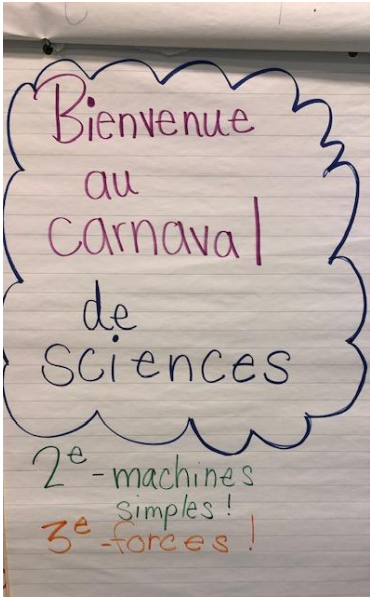 Bienvenue
au
carnaval
de
sciences
2e - machines
simples!
3e - forces!